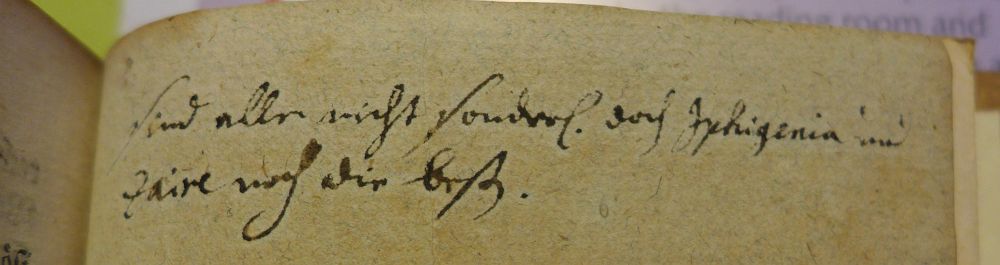 the reading room and
sind alle nicht sonderl. doch Iphigenia und
Zaire noch die besten.